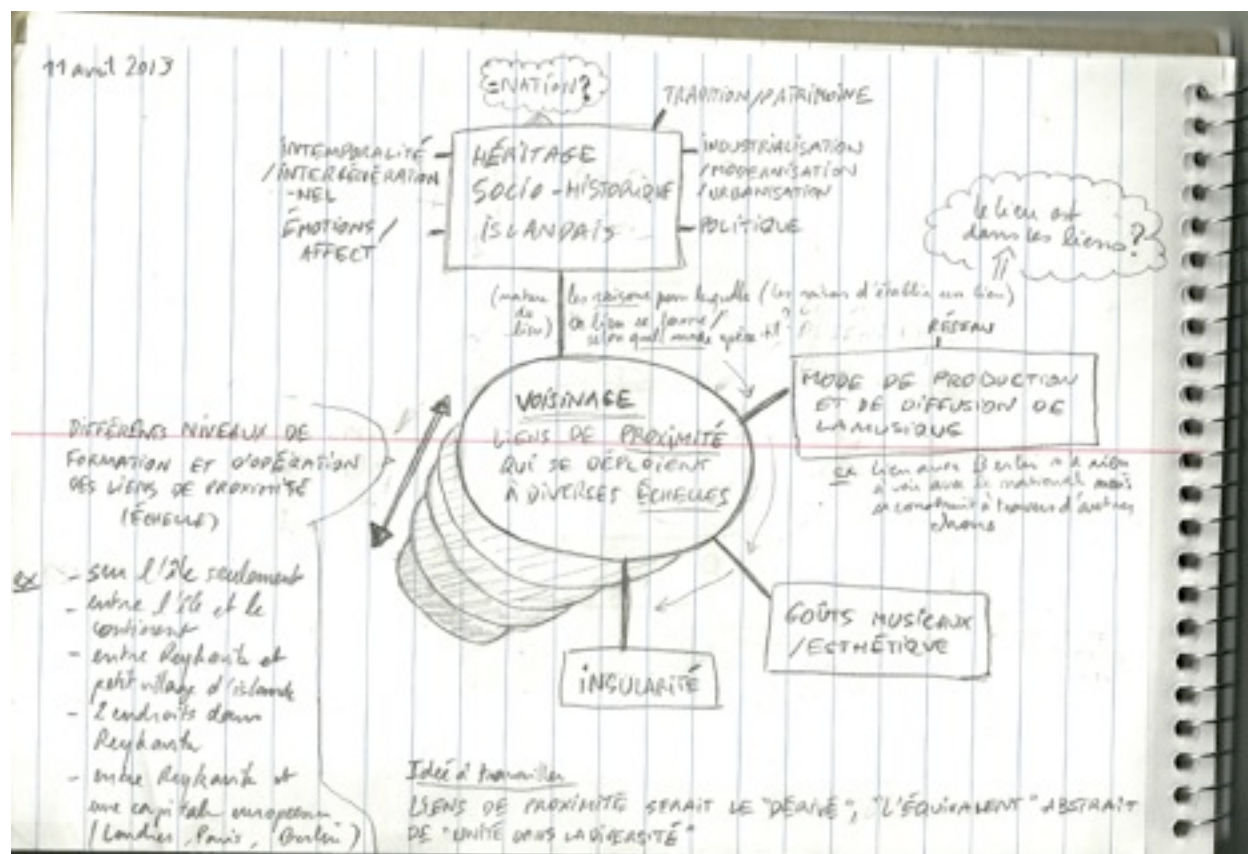 11 avril 2013
=NATION?
TRADITION/PATRIMOINE
INTEMPORALITÉ
/INTERGÉNÉRATION
-NEL
ÉMOTIONS/
AFFECT
HÉRITAGE
SOCIO-HISTORIQUE
ISLANDAIS
INDUSTRIALISATION
/MODERNISATION
/URBANISATION
POLITIQUE
le lien est
dans les liens?
(nature
du
lien)
les raisons pour laquelle (les raisons d'établir un lien)
un lien se forme/
selon quel mode opère-t-il?
RÉSEAU
MODE DE PRODUCTION
ET DE DIFFUSION DE
LA MUSIQUE
ex lien avec Berlin n'a rien
à voir avec le national mais
se construit à travers d'autres
choses
VOISINAGE
LIENS DE PROXIMITÉ
QUI SE DÉPLOIENT
À DIVERSES ÉCHELLES
DIFFÉRENS NIVEAUX DE
FORMATION ET D'OPÉRATION
DES LIENS DE PROXIMITÉ
(ÉCHELLE)
ex - sur l'île seulement
- entre l'île et le
continent
- entre Reykavik et
petit village d'islande
- 2 endroits dans
Reykavik
- entre Reykavik et
une capitale européenne
(Londres, Paris, Berlin)
GOÛTS MUSICAUX
/ESTHÉTIQUE
INSULARITÉ
Idée à travailler
LIENS DE PROXIMITÉ SERAIT LE "DÉRIVÉ", "L'ÉQUIVALENT" ABSTRAIT
DE "UNITÉ DANS LA DIVERSITÉ"